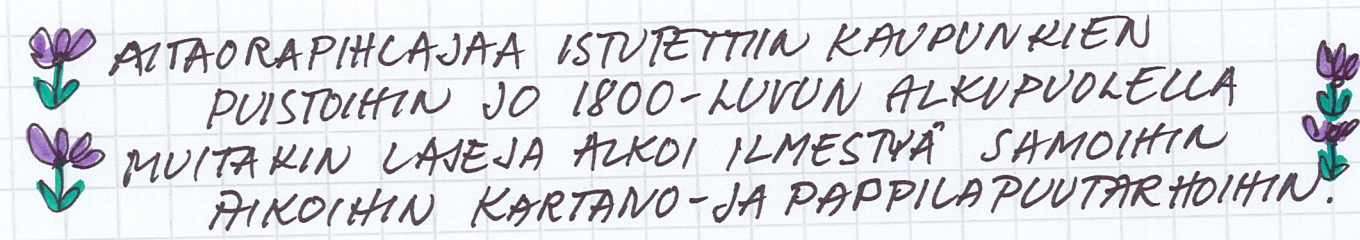 AITAORAPIHLAJAA ISTUTETTIIN KAUPUNKIEN
PUISTOIHIN JO 1800-LUVUN ALKUPUOLELLA
MUITAKIN LAJEJA ALKOI ILMESTYÄ SAMOIHIN
AIKOIHIN KARTANO-JA PAPPILAPUUTARHOIHIN.